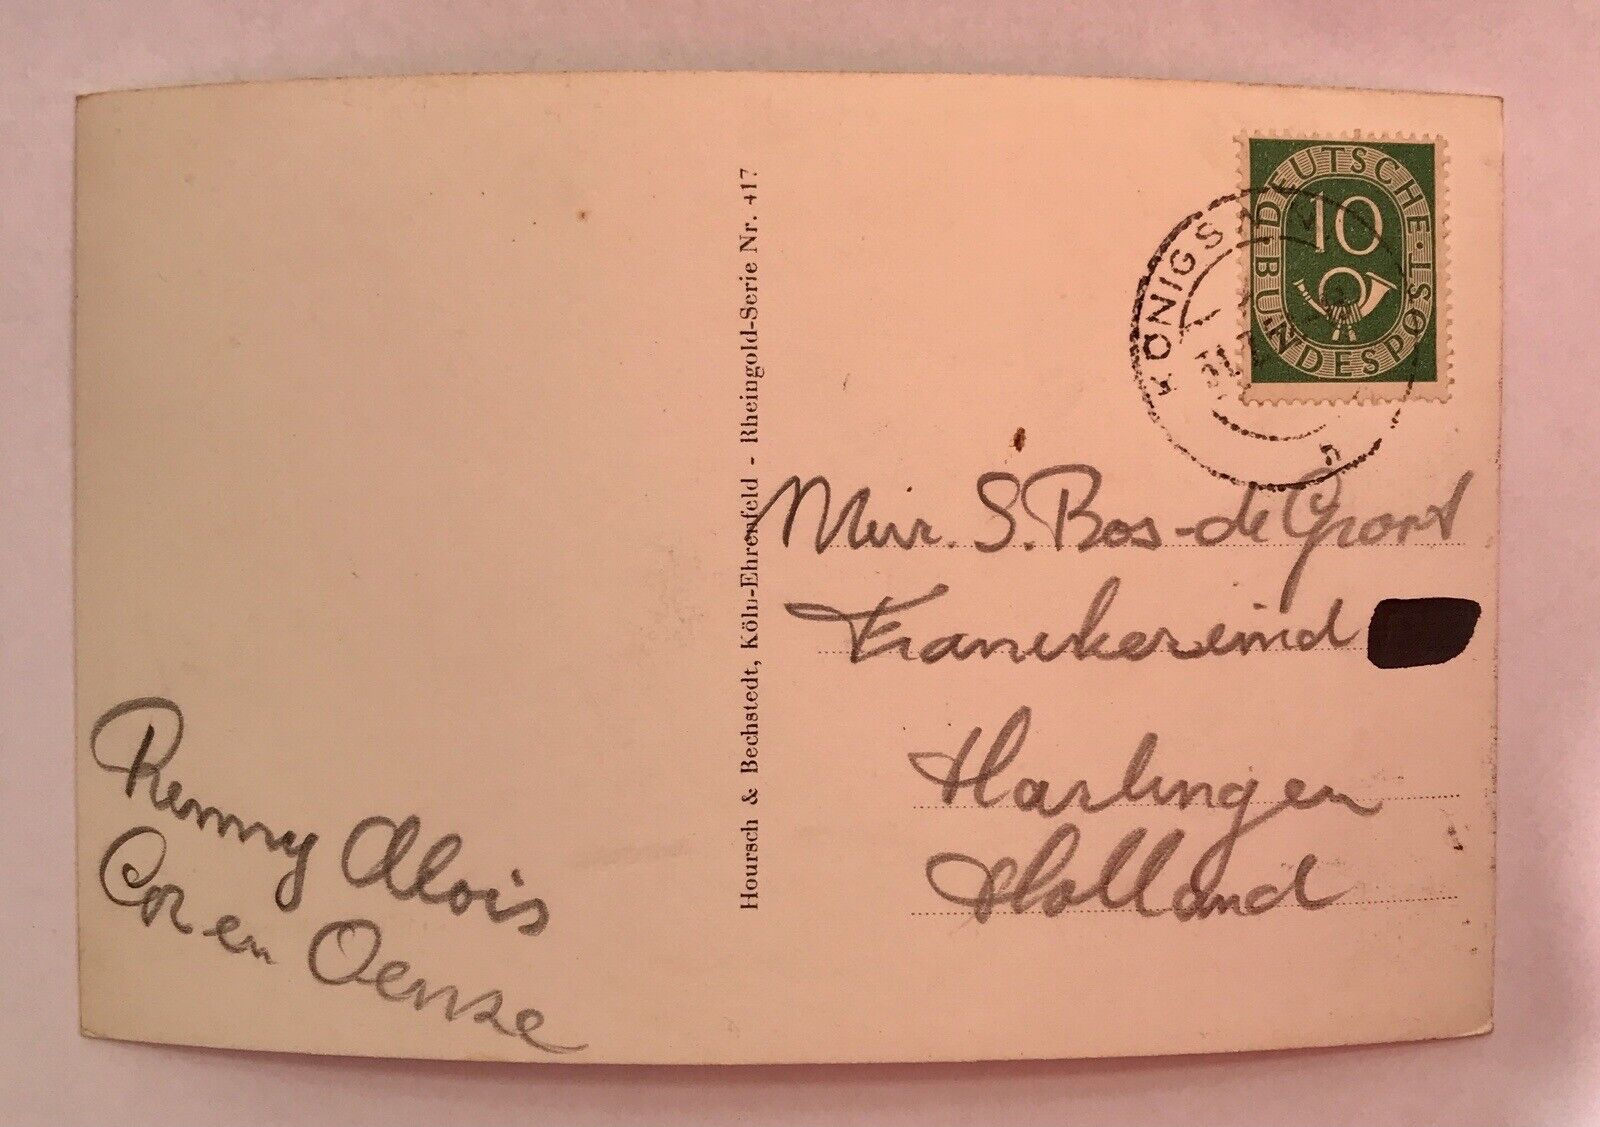 DEUTSCHE · BUNDESPOST
10
KÖNIGS
Hoursch & Bechstedt, Köln-Ehrenfeld - Rheingold-Serie Nr. 417
Mevr. S. Bos-de Groot
Franekereind
Harlingen
Holland
Remmy Alois
Cor en Oenze